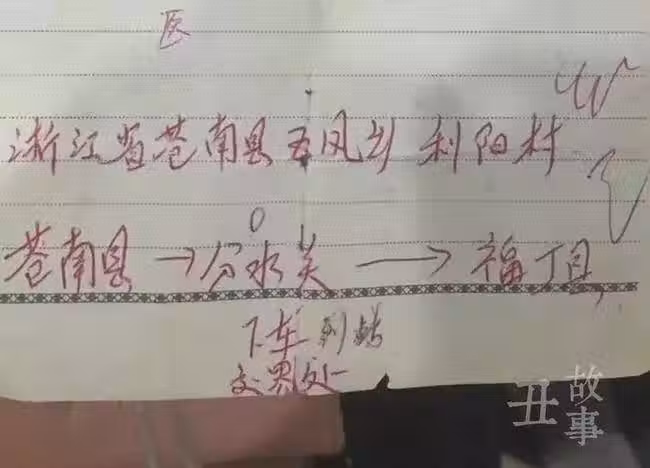 医
浙江省苍南县五凤乡 利阳村
苍南县→分水关→福丁县
下车到站
交界处
丑故事